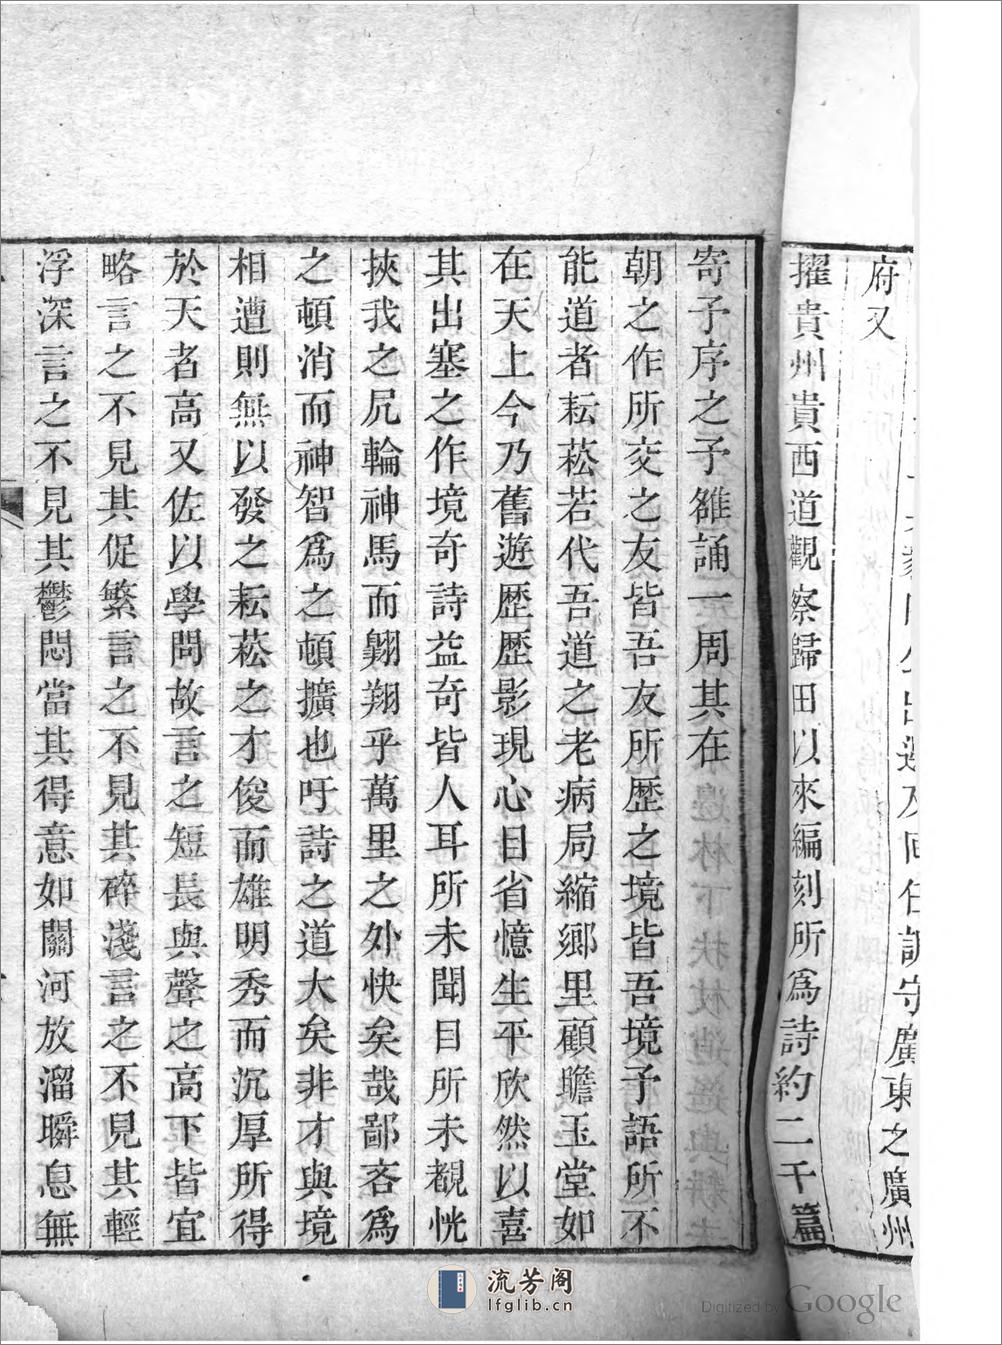 府又
守廣東之廣州
擢貴州貴西道觀察歸田以來編刻所爲詩約二千篇
寄子序之予雒誦一周其在
朝之作所交之友皆吾友所歷之境皆吾境予語所不
能道者耘菘若代吾道之老病局縮鄉里顧瞻玉堂如
在天上今乃舊遊歷歷影現心目省憶生平欣然以喜
其出塞之作境奇詩益奇皆人耳所未聞目所未覩恍
挾我之尻輪神馬而翱翔乎萬里之外快矣哉鄙吝爲
之頓消而神智爲之頓擴也吁詩之道大矣非才與境
相遭則無以發之耘菘之才俊而雄明秀而沉厚所得
於天者高又佐以學問故言之短長與聲之高下皆宜
略言之不見其促繁言之不見其碎淺言之不見其輕
浮深言之不見其鬱悶當其得意如關河放溜瞬息無
流芳阁
lfglib.cn
Digitized by Google